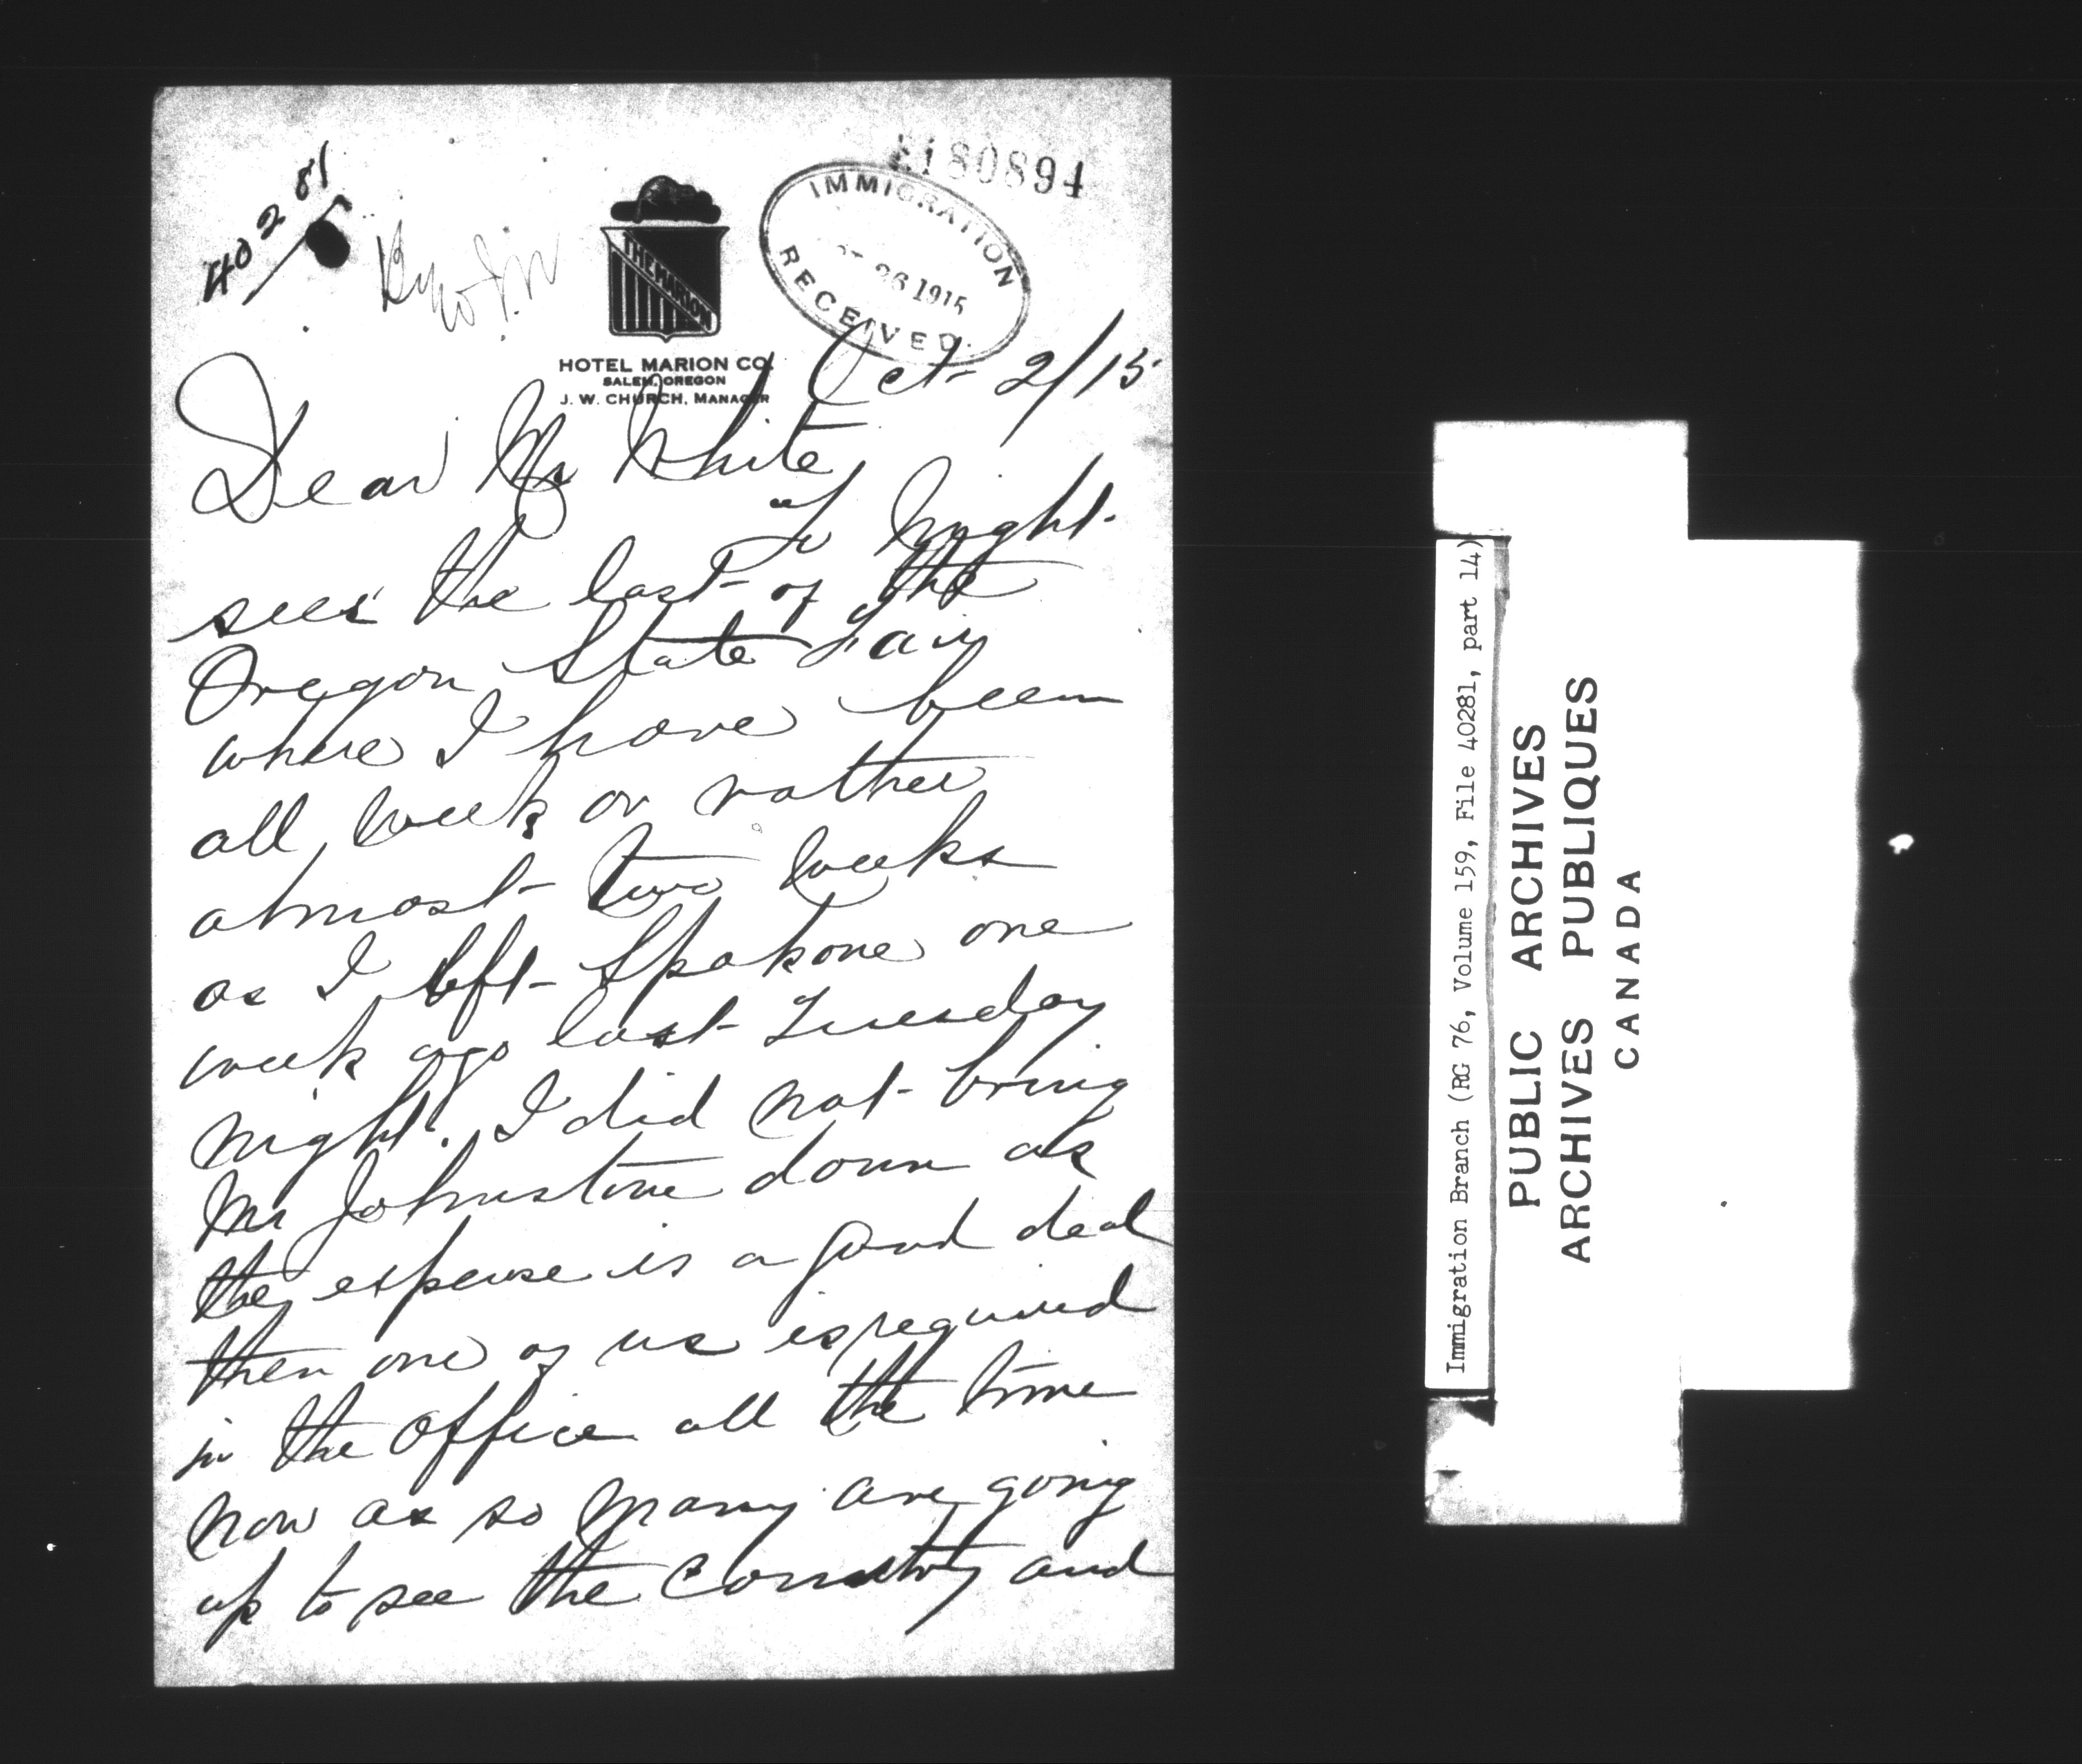 40281
180894
IMMIGRATION
26 1915
RECEIVED.
THE MARION
HOTEL MARION CO.
SALEM, OREGON
J. W. CHURCH, MANAGER
Oct 2/15
Dear Mr White
To Night
sees the last of the
Oregon State Fair
where I have been
all week or rather
almost two weeks
as I left Spokane one
week ago last Tuesday
night. I did not bring
Mr Johnstone down as
the expense is a good deal
then one of us is required
in the office all the time
now as so many are going
up to see the Country and
Immigration Branch (RG 76, Volume 159, File 40281, part 14)
PUBLIC ARCHIVES
ARCHIVES PUBLIQUES
CANADA